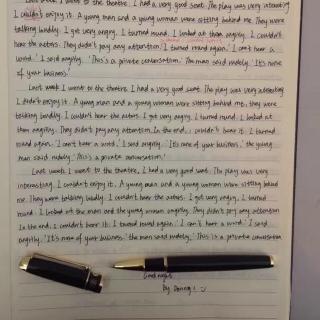 Last week I went to the theatre. I had a very good seat. The play was very interesting
I couldn't enjoy it. A young man and a young woman were sitting behind me. They were
talking loudly. I got very angry. I turned round. I looked at them angrily. I couldn't
hear the actors. They didn't pay any attention. I turned round again. 'I can't hear a
word.' I said angrily. 'This is a private conversation.' The man said rudely. 'It's none
of your business.'
Last week I went to the theatre. I had a very good seat. The play was very interesting
I didn't enjoy it. A young man and a young woman were sitting behind me, they were
talking loudly. I couldn't hear the actors. I got very angry. I turned round. I looked at
them angrily. They didn't pay any attention. In the end, I couldn't bear it. I turned
round again. 'I can't hear a word.' I said angrily. 'It's none of your business.' the young
man said rudely. 'This is a private conversation.'
Last week I went to the theatre, I had a very good seat. The play was very
interesting. I couldn't enjoy it. A young man and a young woman were sitting behind
me. They were talking loudly. I couldn't hear the actors. I got very angry. I turned
round. I looked at the man and the young woman angrily. They didn't pay any attention
In the end, I couldn't bear it. I turned round again. 'I can't hear a word.' I said
angrily. 'It's none of your business.' the man said rudely. 'This is a private conversation
Good night
by